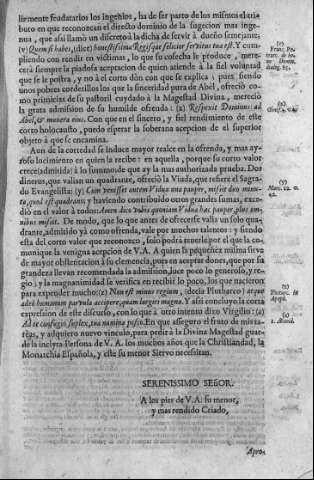 liemente feudatarios los ingenios, ha de ser parte de los mismos el tributo
en que reconozcan el directo dominio de la sugecion mas ingenua
, que assi llamó un discreto à la dicha de servir à dueño semejante;
(v) Quem si habes, (dice) honestissima Regisque felicior servitus tua est. Y cumpliendo
con rendir en victimas, lo que su cosecha le produce, merecerà
siempre la piadosa aceptacion de quien atiende à la fiel voluntad
que se le postra, y no à el corto dòn con que se explica; pues siendo
unos pobres corderillos los que la sinceridad pura de Abel, ofreciò como
primicias de su pastoril cuydado à la Magestad Divina, mereciò
la grata admission de su humilde ofrenda: (x) Respexit Dominus ad
Abel, & munera eius. Con que en el sincero, y fiel rendimiento de este
corto holocausto, puedo esperar la soberana acepcion de el superior
objeto à que se encamina.
Aun de la cortedad se induce mayor realce en la ofrenda, y mas ayroso
lucimiento en quien la recibe: en aquella, porque su corto valor
crece (admitida) à la summidad que ay la mas authorizada prueba. Dos
dineros, que valian un quadrante, ofreciò la Viuda, que refiere el Sagrado
Evangelista: (y) Cum venisset autem Vidua una pauper, misit duo minuta,
quod est quadrans; y haviendo contribuido otros grandes sumas, excediò
en el valor à todos: Amen dico vobis quoniam Vidua hæc pauper plus omnibus
misit. De modo, que lo que antes de ofrecerse valia un solo quadrante,
admitido yà como ofrenda, vale por muchos talentos: y siendo
esta del corto valor que reconozco, solo podrà
munique la venigna acepcion de V.A. A quien la pequeñez misma sirve
de mayor obstentacion à su clemencia, pura en aceptar dones, que por sa
grandeza llevan recomendada la admission, luce poco lo generoso, y regio
; y la magnanimidad se verifica en recibir lo poco, los que nacieron
para expender mucho: (z) Non est minus regium, (decia Plutharco) atque
adeo humanum parvula accipere, quam largiri magna. Y assi concluyo la corta
expression de este discurso, con lo que à otro intento dixo Virgilio: (a)
Ad te confugio, suplex, tua numina posco. En que assegura el fruto de mis tareas,
y adquiero nuevo vinculo, para pedir à la Divina Magestad guarde
la inclyta Persona de V. A. los muchos años que la Christiandad, la
Monarchia Española, y este su menor Siervo necessitan.
SERENISSIMO SEÑOR.
A los pies de V.A. su menor,
y mas rendido Criado,
(v)
(x)
(y)
Marc. 12. v.
42.
(z)
Plutarc. in
Apoph.
(a)
1. Æneid.
Apro-